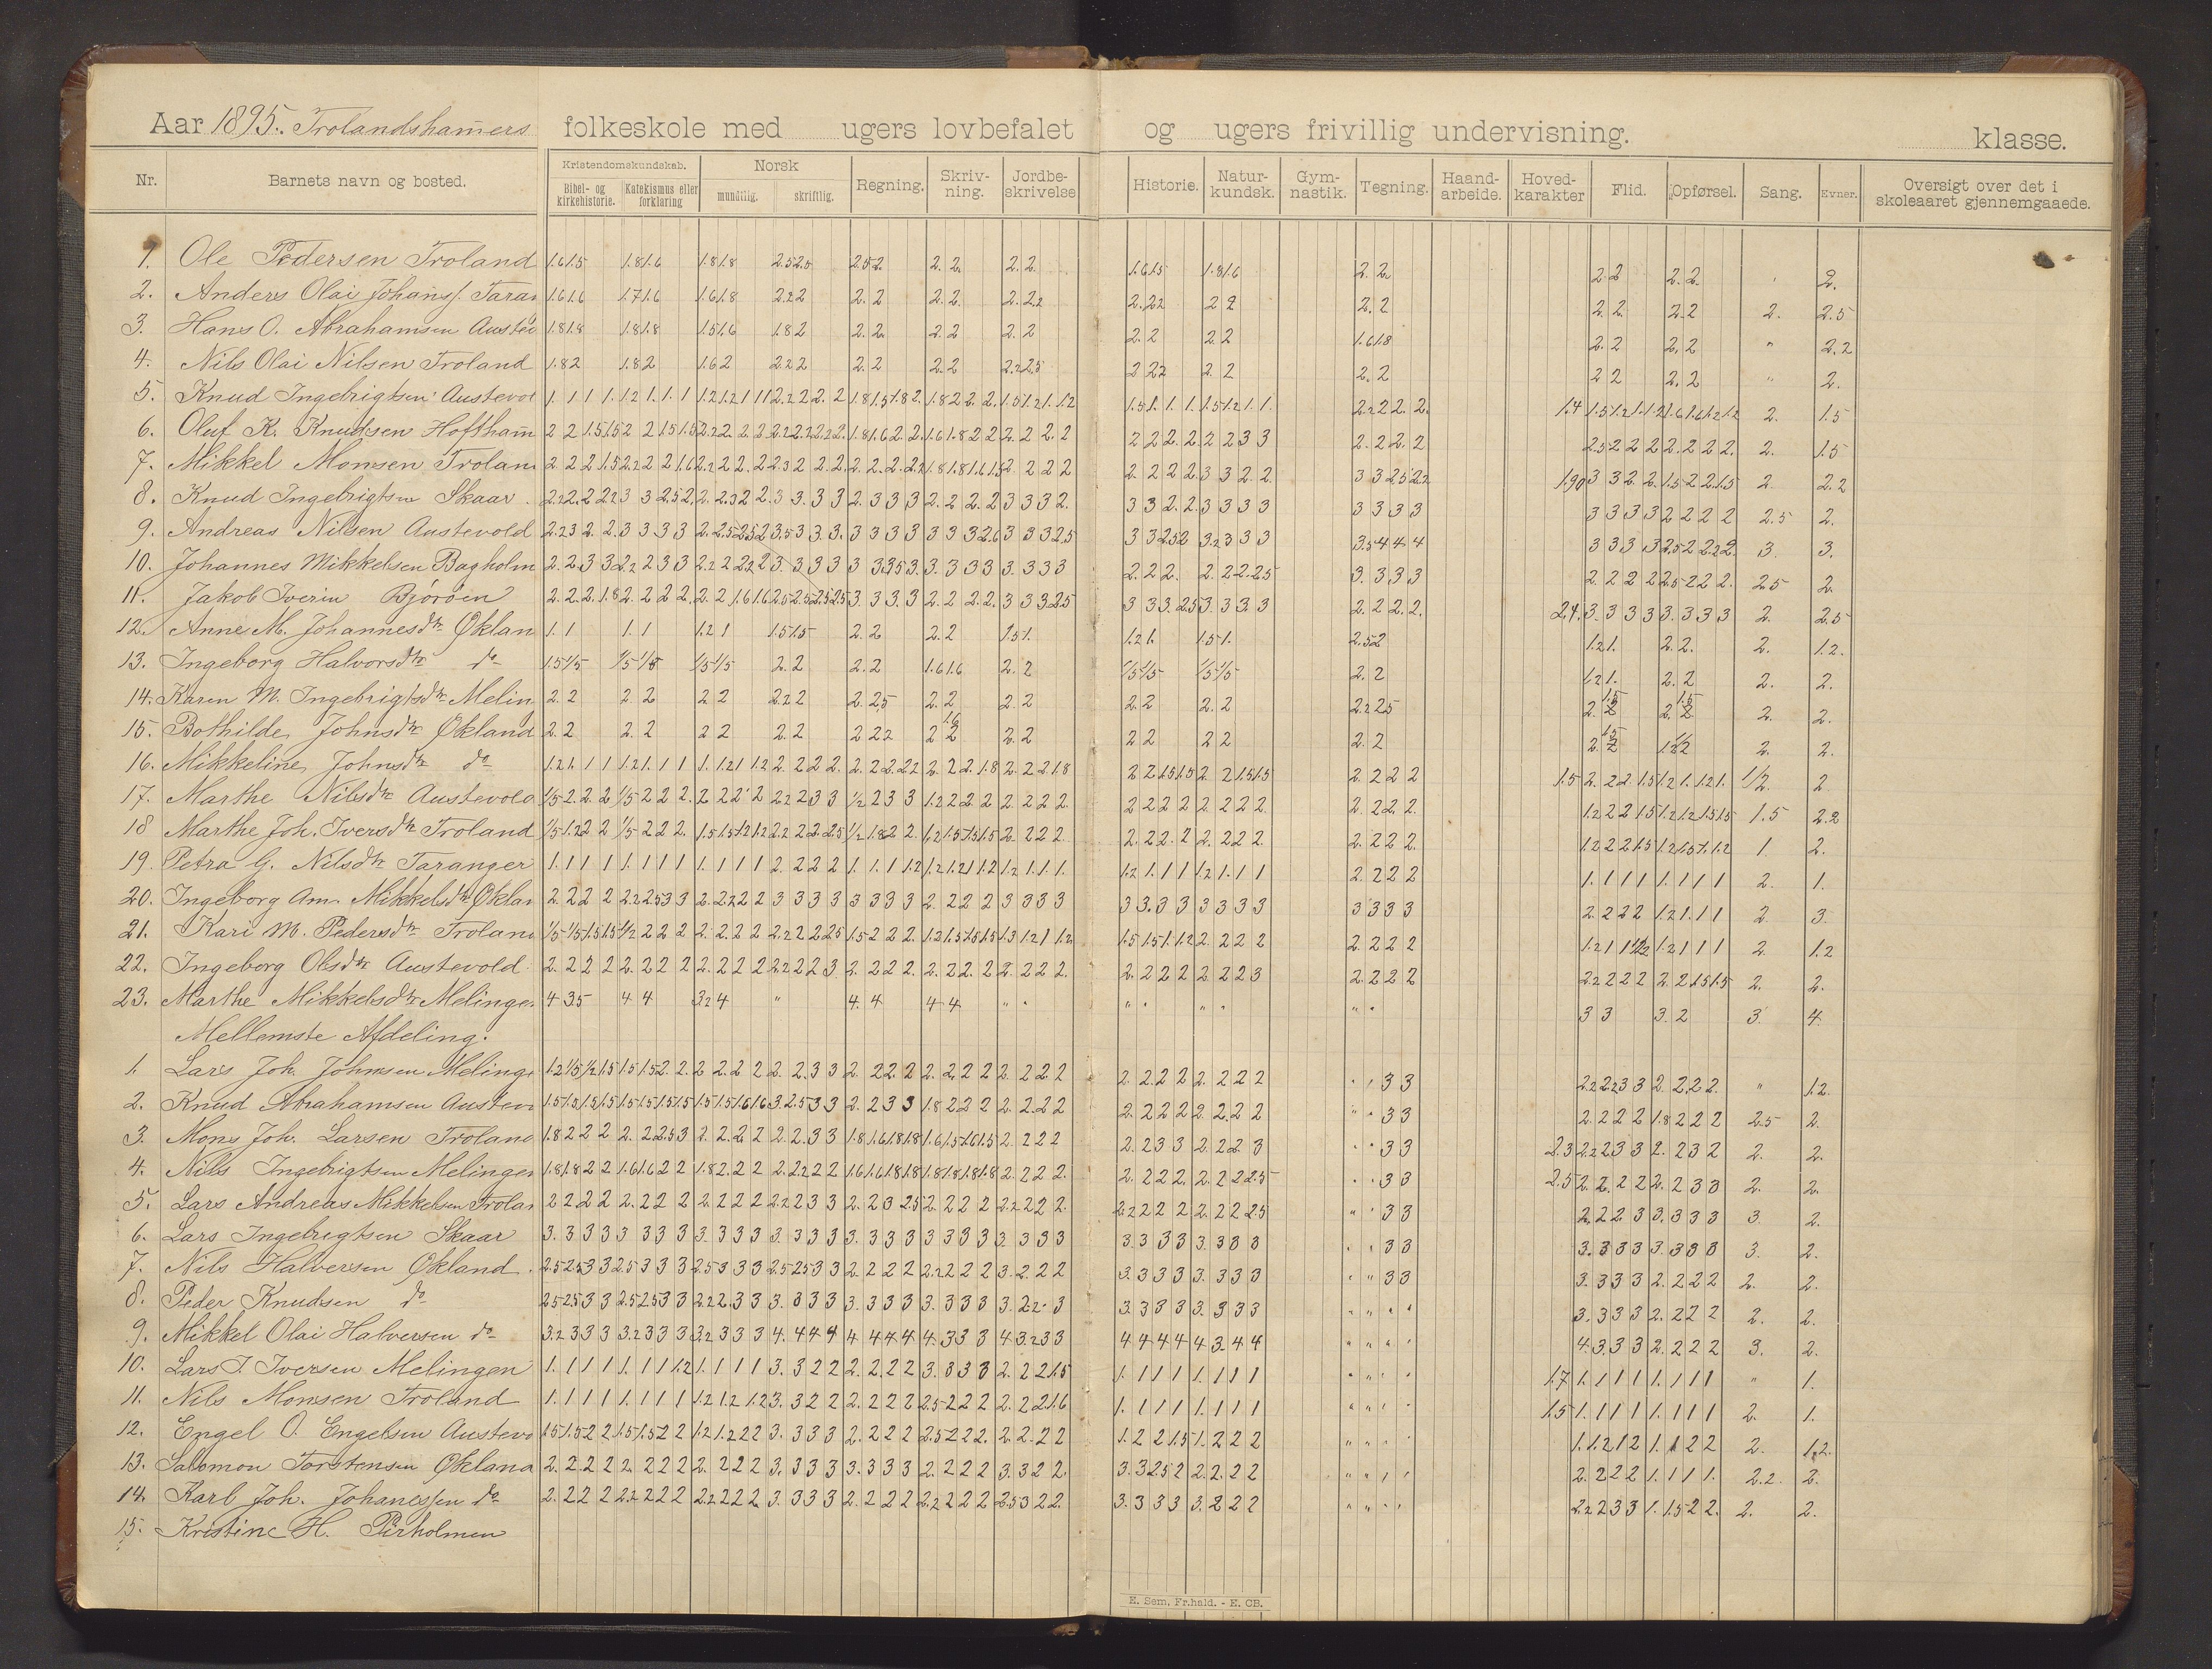 Aar 1895. Trolandshamers folkeskole med ugers lovbefalet og ugers frivillig undervisning. klasse.
Nr. Barnets navn og bosted. Kristendomskundskab. Bibel- og kirkehistorie. Katekismus eller forklaring Norsk mundtlig. skriftlig. Regning. Skriv-ning. Jordbe-skrivelse Historie. Natur-kundsk. Gym-nastik. Tegning. Haand-arbeide. Hoved-karakter Flid. Opførsel. Sang. Evner. Oversigt over det i skoleaaret gjennemgaaede.
1. Ole Pedersen Troland 1.6 1.5 1.8 1.6 1.8 1.8 2.5 2.5 2.5 2 2. 2. 2. 2. 1.6 1.5 1.8 1.6 2. 2. 2 2 2. 2. 2.
2. Anders Olai Johans. Taran 1.6 1.6 1.7 1.6 1.6 1.8 2.2 2 2. 2 2. 2. 2. 2.2 2. 2.2 2 2 2. 2 2. 2. 2. 2 2. 2.5
3. Hans O. Abrahamsen Austev 1.8 1.8 1.8 1.8 1.5 1.6 1.8 2 2. 2. 2. 2 2. 2 2. 2 2 2 1.6 1.8 2. 2 2. 2 " 2.2
4. Nils Olai Nilsen Troland 1.8 2 1.8 2 1.6 2 2.2 2 2. 2 2. 2 2.2 2.5 2 2.2 2. 2 2. 2 2 2 2. 2 " 2.
5. Knud Ingebrigtsen Austevol 1. 1 1 1. 1.2 1. 1. 1 1.2 1.2 1 1 2.2 2 2. 2 1.8 1.5 1.8 2. 1.8 2 2. 2. 1.5 1.2 1. 1.2 1.5 1. 1. 1. 1.5 1.2 1. 1. 2.2 2 2. 2. 1.4 1.5 1.2 1. 1.2 1.6 1.6 1.2 1.2 2. 1.5
6. Oluf K. Knudsen Hoftham 2 2 1.5 1.5 2 2 1.5 1.5 2.2 2 2. 2 1.8 1.6 2. 2. 1.6 1.8 2 2 2. 2 2. 2 2 2 2. 2 2 2 3 3 2. 2. 2. 2 2.5 2 2 2 2. 2 2 2. 2. 1.5
7. Mikkel Monsen Trolan 2 2 2 1.5 2.2 2 2 1.6 2.2 2 2. 2 2.3 2 2. 2. 2. 2. 2. 2.2 1.8 1.8 1.6 1.5 2 2 2 2 2. 2 2 2 3 3 2. 2. 3 3 2.5 2.2 1.90 3 3 2. 2. 1.5 2 2. 1.5 2. 2.2
8. Knud Ingebrigtsen Skaar 2.2 2. 2 2.2 3 3 2.5 2. 2. 2.3 2 2. 3 3. 3 3 2. 3 3 3 2. 2 2. 2 3 3 3 2. 3 3 2. 2. 3 3 3 3 3 3 3 3 3 3 3 3 2 2 2 2 2.5 2.
9. Andreas Nilsen Austevold 2.2 3 2. 2. 3 3. 3 3 2. 2.5 2.5 2 3.5 3. 3. 3. 3 3 3 3 3 3 3 2.6 3 3 3 2.5 3 3 2.5 2 3.2 3 3 3 3.5 4 4 4 3 3 3 3 2.5 2 2.2 2. 3. 3.
10. Johannes Mikkelsen Bagholm 2. 2. 3 3 2. 2 3 3 2.2 2 2.2 2 3. 3 3 3 3 3 3.5 3. 3. 3 3 3 3. 3 3 3 2. 2 2. 2. 2 2. 2.5 3. 3. 3 3 2. 2 2 2 2.5 2 2 2. 2.5 2.
11. Jakob Iversen Bjørøen 2. 2. 2. 1.8 2. 2 2 2. 2. 2 1.6 1.6 2.5 2.5 2.5 2.5 3. 3. 3. 3 2. 2 2. 2. 3 3 3 2.5 3 3 3. 2.5 3. 3. 3 3 2. 2 2. 2. 2.4 3. 3 3 3 3. 3. 3 3 2. 2.5
12. Anne M. Johannesdtr Øklan 1. 1 1. 1 1.2 1 1.5 1.5 2. 2 2. 2 1.5 1. 1.2 1. 1.5 1. 2.5 2 1.2 1. 2. 2. 2. 1.2.
13. Ingeborg Halvorsdtr do 1.5 1/5 1/5 1/8 1/5 1/5 2. 2 2. 2 1.6 1.6 2. 2 1/5 1/5 1/5 1/5 2. 2 1.2 1. 2. 2 2. 2.
14. Karen M. Ingebrigtsdtr Melin 2 2 2. 2 2 2 2.2 2 2. 2.5 2. 2 2. 2 2. 2 2. 2 2.2 2.5 2. 1.5 2. 1.5 2. 2.
15. Bothilde Johnsdtr Økland 2. 2 2. 2 2 2 2. 2 2 2.2 2 1.6 2. 2 2 2 2 2 2. 2 2. 1.5 1.2 2 2. 2.
16. Mikkeline Johnsdtr do 1.2 1. 1 1 1.2 1. 1 1 1. 1.2 1 1.2 2. 2 2 2. 2. 2 2. 2.2 2. 2 2. 1.8 2. 2 2 1.8 2 2 1.5 1.5 2. 2 1.5 1.5 2. 2 2 2 1.5 2. 2 2. 1.5 1.2 1. 1.2 1. 1/2. 2
17. Marthe Nilsdtr Austevold 1/5 2. 2. 2 1/5 2 2 2. 2 2 2 2 2.2 2 3 3 1/2 2 3 3 1.2 2 2 2 2. 2 2 2. 2 2 2 2 2. 2 2 2. 2. 2 2 2. 1.2 2 2 1.5 1.2 1.2 1.5 1.5 1.5 2.2
18 Marthe Joh. Iversdtr Troland 1/5 1.2 2 2 1/5 2 2 2. 1.5 1.5 1.2 1.2 2.2 2 2. 2.5 1/2 1.8 2 2. 1.2 1.5 1.5 1.5 2. 2 2 2 2. 2 2. 2 2. 2 2 2. 2. 2 2 2. 1.2 2 2 1.5 1.2 1.5 1. 1.2 1. 2.
19. Petra G. Nilsdtr Taranger 1. 1 1 1 1. 1 1 1 1. 1 1 1 2. 2 2 2 1. 1. 1 1.2 1.2 1.2 1 1.2 1.2 1. 1. 1. 1.2 1. 1 1 1.2 1. 1 1 2. 2 2 2 1. 1 1 1 1. 1 1 1 2. 1.
20. Ingeborg Am. Mikkelsdtr Øklan 2. 2 2 2 2.2 2.5 3 3 2. 2.2 2 2 3 3 3 3 3 3 3 3 2. 2 2 2 3 3 3 3 3 3. 3 3 3 3 3 3 3 3 3 3 2. 2 2 2 1.2 1. 1 1 2. 3.
21. Kari M. Pedersdtr Trolan 1/5 1/5 1.5 1.5 1/2 2 2 2 2. 2. 2 2 2.2 2 2 2.5 1.5 2 2 2. 1.2 1.5 1.5 1.5 1.3 1.2 1 1.2 1.5 1.5 1. 1.2 2. 2 2 2 2. 2 2 2 1.2 1 1 1/2 1.2 1 1 1 2. 1.2
22. Ingeborg Olsdtr Austevold 2. 2 2 2 2. 2 2 2 2. 2 2 2 2.2 2 2 3 2. 2 2 2. 2. 2 2. 2 2. 2 2 2. 2. 2 2 2 2. 2 2 3 2. 2 2 2 2.2 2 2 2 2. 2 1.5 1.5 2. 2.
23. Marthe Mikkelsdtr Melingen 4 3.5 4. 4 3.2 4 " 4. 4 4 4 " " " " " " " " 3 3 3. 2 3. 4.
Mellemste Afdeling.
1. Lars Joh. Johnsen Melinge 1.2 1/5 1/2 1.5 1.5 1.5 2. 2. 2 2. 2 2 2. 2. 3 3 2. 2 2. 2 2. 2. 2 2 2. 2 2. 2 2. 2 2 2 2. 2 2 2 " " 3 3 2.2 2.2 3 3 2. 2. 2 2. " 1.2.
2. Knud Abrahamsen Austev 1.5 1.5 1.5 1.5 1.5 1.5 1.5 1.5 1.5 1.5 1.6 1.6 3. 2.5 3 3 2. 2 3 3 1.8 2 2 2 2. 2. 2 2 2. 2 2 2 2. 2. 2 2 " " 3 3 2. 2 2 2 1.8 2 2 2 2.5 2.
3. Mons Joh. Larsen Troland 1.8 2 2 2 2. 2 2.5 3 2. 2. 2 2 2. 2. 3 3 1.8 1.6 1.8 1.8 1.6 1.5 1.6 1.5 2 2 2 2 2. 2 3 3 2. 2 2. 3 " " 3 3 2.3 2.2 2 3 3 2. 2 3 2 2. 2.
4. Nils Ingebrigtsen Melingen 1.8 1.8 2 2 1.6 1.6 2 2 1.8 2. 2 2 2. 2.2 2 2 1.6 1.6 1.8 1.8 1.8 1.8 1.8 1.8 2. 2 2 2. 2. 2 2 2. 2. 2 2 2.5 " " 3 3 2.5 2. 2. 2 2 2. 2 3 3 2. 2.
5. Lars Andreas Mikkelsen Trolan 2 2 2 2 2. 2 2 2 2. 2 2 2 2.2 2 3 3 2. 2 3 2.5 2. 2 2 2 2.2 2 2 2. 2.2 2 2 2 2. 2 2 2.5 " " 3 3 2. 2 2 3 3. 3 3 3 3. 2.
6. Lars Ingebrigtsen Skaar 3. 3 3 3 3 3 3 3 3. 3 3 3 3. 3 3 3 3. 3 3 3 3 3 3 3 3. 3 3 3 3. 3 3 3 3. 3 3 3 " " 3 3 3. 3 3 3 3. 3 3 3 3. 2.
7. Nils Halversen Økland. 2.5 2.5 3 3 2.5 3 3 3 2.5 3 3 3 2.5 2.5 3 3 2. 2 2 2 2.2 2 2 2 3. 2. 2 2 3. 3 3 3 3. 3 3 3 " " 3 3 3. 3 3 3 2. 2 2 2 2. 2.
8. Peder Knudsen do 2.5 2.5 3 3 2.5 2.5 3 3 2.2 2. 3 3 3. 3 3 3 3. 3 3 3 3. 3 3 3 3. 2.2 3 3. 3 3 3 3. 3 3 3 " " " " 3. 3 3 3 2. 2 2 2 2. 2.
9. Mikkel Olai Halversen do 3.2 3 3 3 3.2 3 3 3 3.2 3 3 3 4. 4 4 4 4 4 4 4 4. 3 3 3 4 3.2 3 3 4 4 4 4 4 3. 4 4 " " " " 4. 3. 3 3 2. 2 2 2 3. 2.
10. Lars J. Iversen Melingen 1. 1 1 1 1. 1 1 1.2 1. 1 1 1 3. 3 2 2 2. 2. 2 2 3. 3 3 3 2. 2 2 1.5 1. 1 1 1 1. 1 1 1 " " " " 1.7 1. 1 1 1 1. 1 1 1 " 1.
11. Nils Monsen Troland 1. 1 1 1 1. 1 1 1 1.2 1.2 1.2 3. 3 2 2 2. 2 2 2 2.5 2 2 2 2. 2 2 1.6 1. 1 1 1 1. 1 1 1 " " " " 1.5 1. 1 1 1 1. 1 1 1 2. 1.
12. Engel O. Engelsen Austevo 1.5 1.5 2 2 1.5 1.5 2 2 1.2 1.2 2 2 3. 3 3 3 2. 2 2 2 2.5 2 2 2. 2. 2. 2 2 1. 2 2 1.5 1. 2 2 2 " " " " 1. 1.2 1 2 1. 1 2 2 2. 1.2.
13. Salomon Torstensen Økland 2. 2 2 2 2. 2 2 2 2. 2 2 2 3. 3 3 3 3. 3 3 3 2. 2 2 2 3. 3 2 2. 3. 3 2.5 2 2. 2. 2 2 " " " " 2. 2 2 2 1. 1 1 1. 2.2. 2.
14. Karl Joh. Johanessen do 2. 2 2 2 2.2 2 2 2 2.2 2 2 2 3. 3 3 3 2. 2 2 2 2.2 2 2 2 2.5 3 2 2. 3. 3 3 3 3. 2 2 2 " " " " 2.2 2 3 3 1. 1.5 2 2. 2. 2.
15. Kristine H. Pirholmen
E. Sem, Fr.hald. - E. CB.